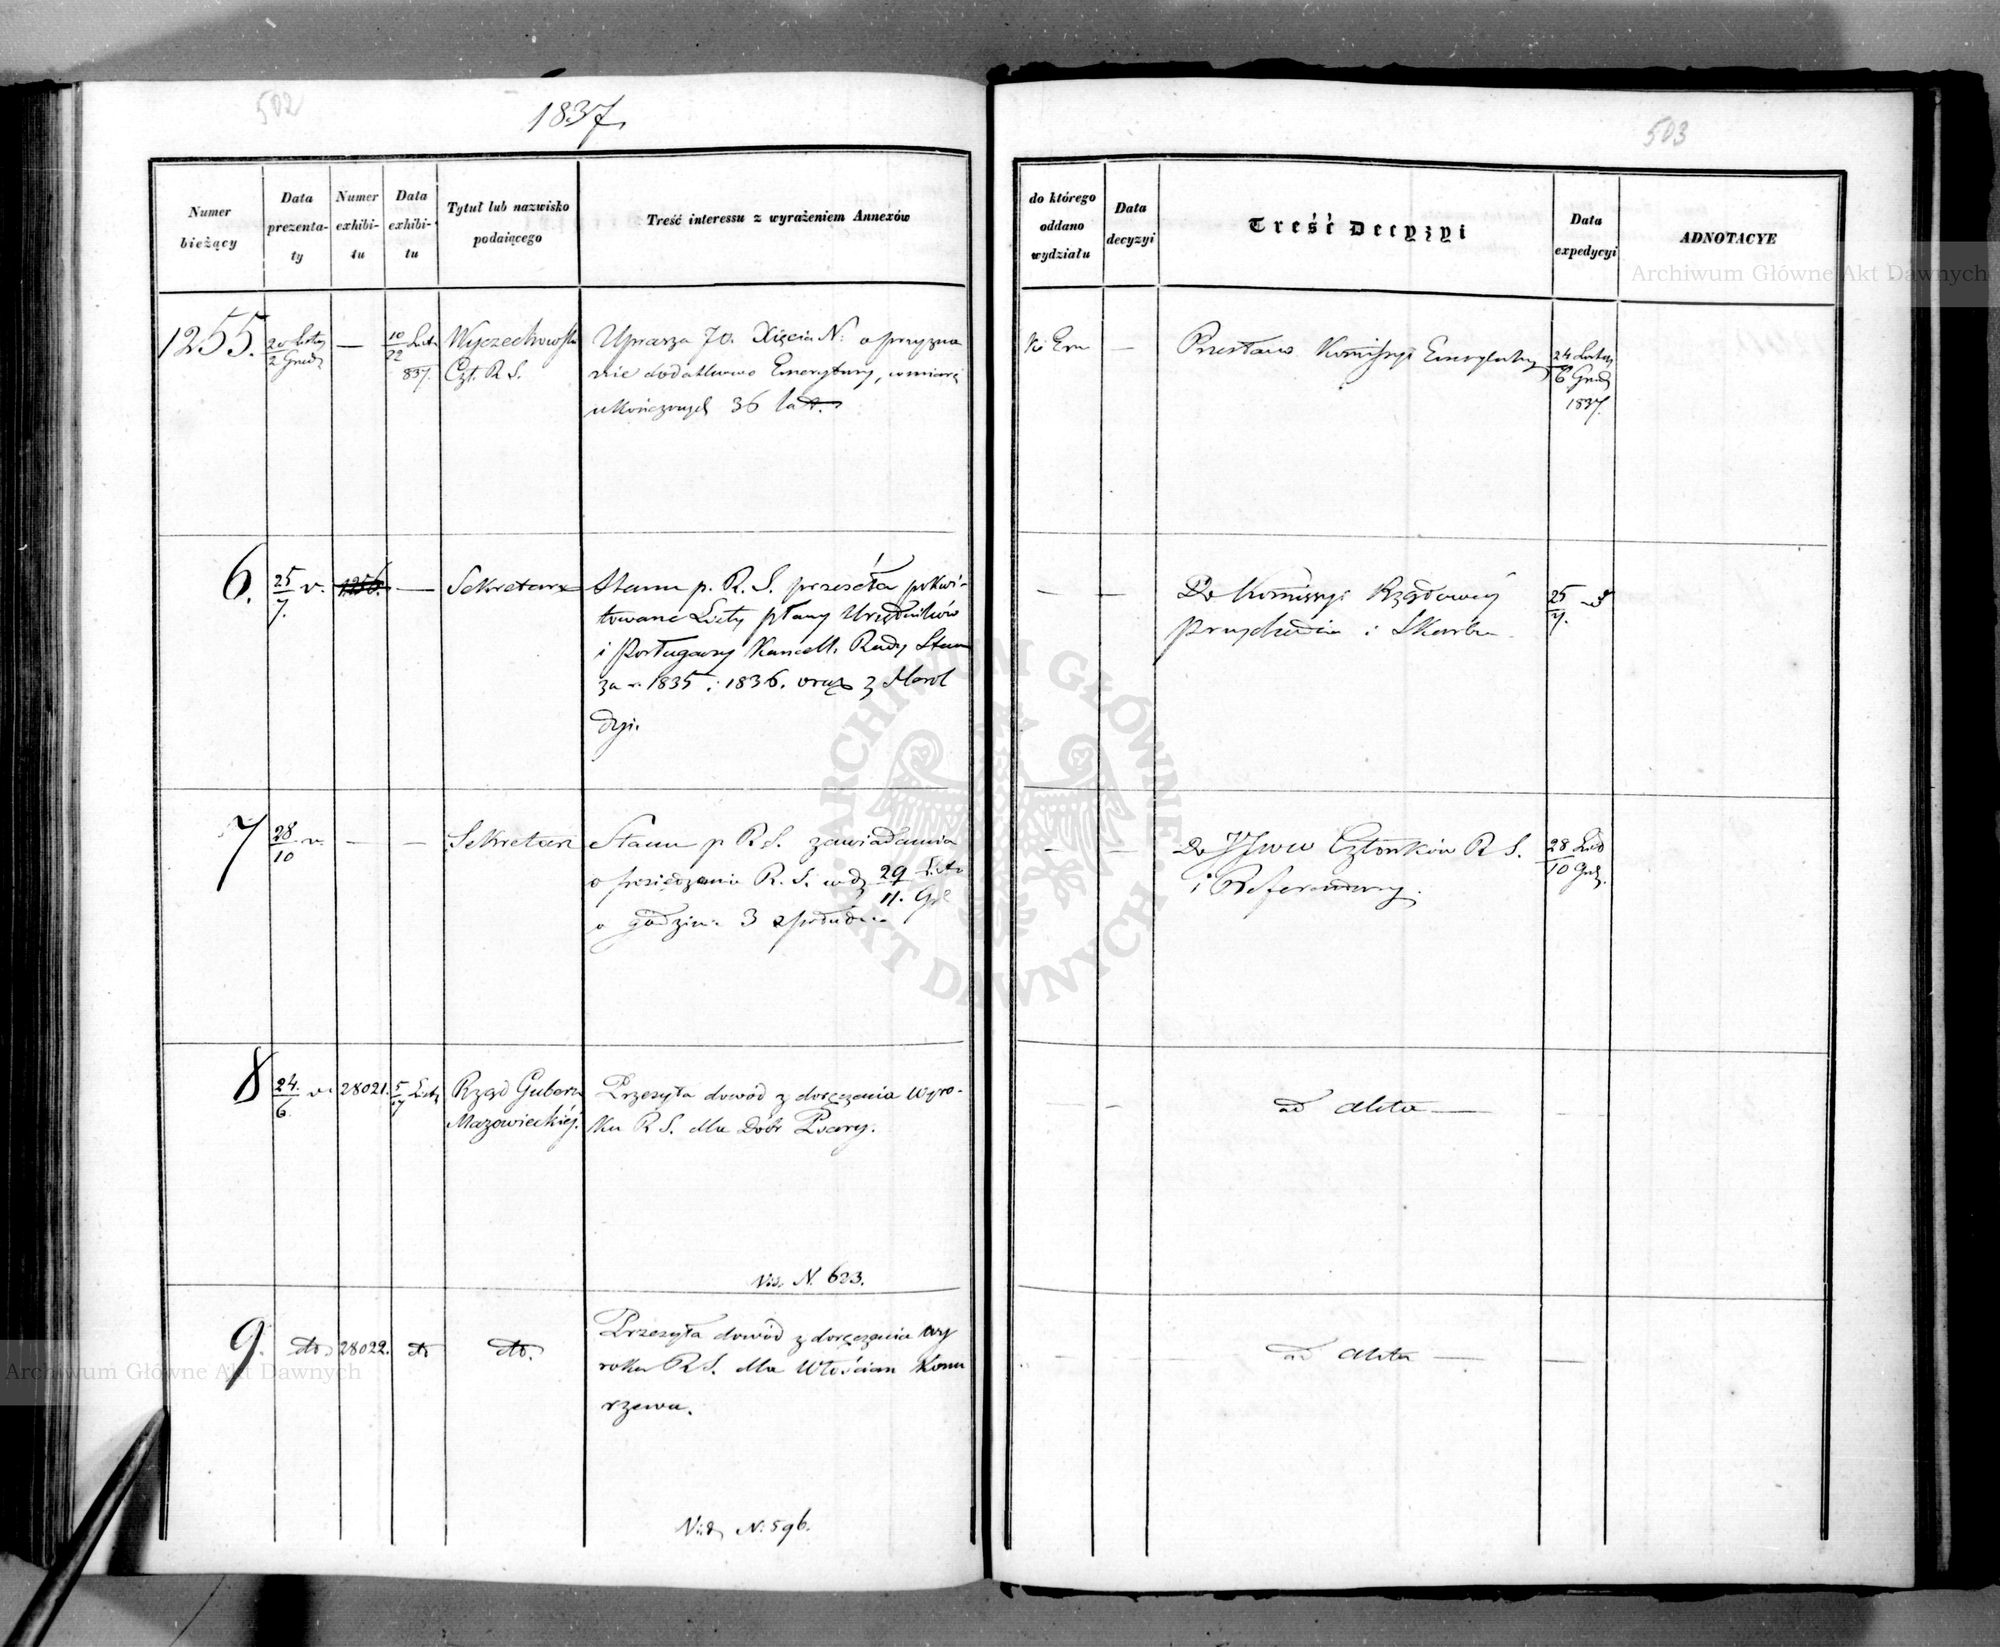 502
1837
Numer bieżący
Data prezenta-ty
Numer exhibi-tu
Data exhibi-tu
Tytuł lub nazwisko podaiącego
Treść interessu z wyrażeniem Annexów
1255.
20 Listop
2 Grud
—
10 List.
22
837.
Wyczechowski
Czł. R. S.
Uprasza JO. Xięcia N: o przyzna
nie dodatkowo Emerytury, w miarę
ukończonych 36 lat.
6.
25 v.
7.
1256.
—
Sekretarz
Stanu p. R. S. przeséła pokwi-
towane Listy płacy Urzędników
i Posługaczy Kancell. Rady Stanu
za r. 1835 i 1836. oraz z Herol
dyi.
7
28 v.
10
—
—
Sekretarz
Stanu p R. S. zawiadamia
o posiedzeniu R. S. w d. 29 Listo
11. Gr
o godzinie 3 z południa
8
24. v.
6.
28021.
5 List.
17
Rząd Gubern
Mazowieckiéj.
Przesyła dowód z doręczenia Wyro-
ku R S. dla Dóbr Psary.
Vid. N. 623.
9.
dto
28022.
dto
dto.
Przesyła dowód z doręczenia wy
roku R S. dla Włościan Komo
rzewa.
Vid. N: 596.
503
do którego oddano wydziału
Data decyzyi
Treść Decyzyi
Data expedycyi
ADNOTACYE
K: Em
—
Przesłano Kommissyi Emerytalnej
24 Listop
6 Grud
1837.
—
—
Do Kommissyi Rządowéj
Przychodów i Skarbu
25
7.
—
—
Do JJWW Członków R S.
i Referendarzy.
28 List
10 Grud.
—
—
ad Acta —
—
—
—
ad Acta —
—
Archiwum Główne Akt Dawnych
Archiwum Główne Akt Dawnych
ARCHIWUM GŁÓWNE AKT DAWNYCH